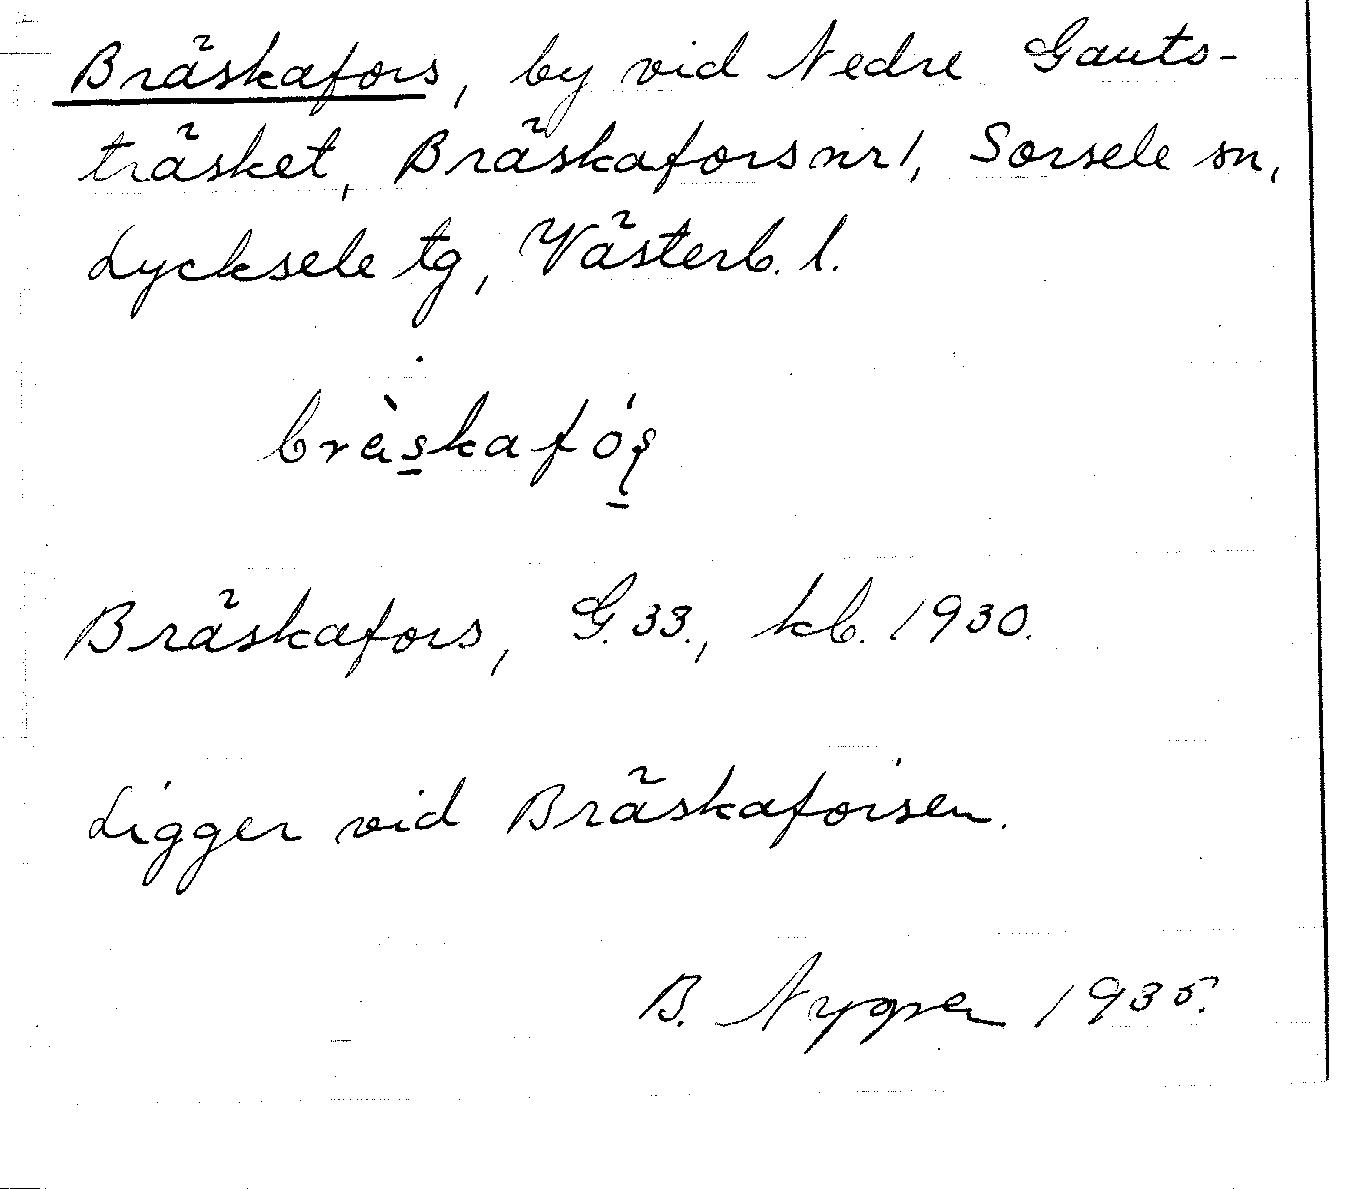 Bräskafors, by vid Nedre Gauts-
träsket, Bräskafors nr 1, Sorsele sn,
Lycksele tg, Västerb. l.
bräskafós̩
Bräskafors, G. 33., kb. 1930.
Ligger vid Bräskaforsen.
B. Nygren 1935.